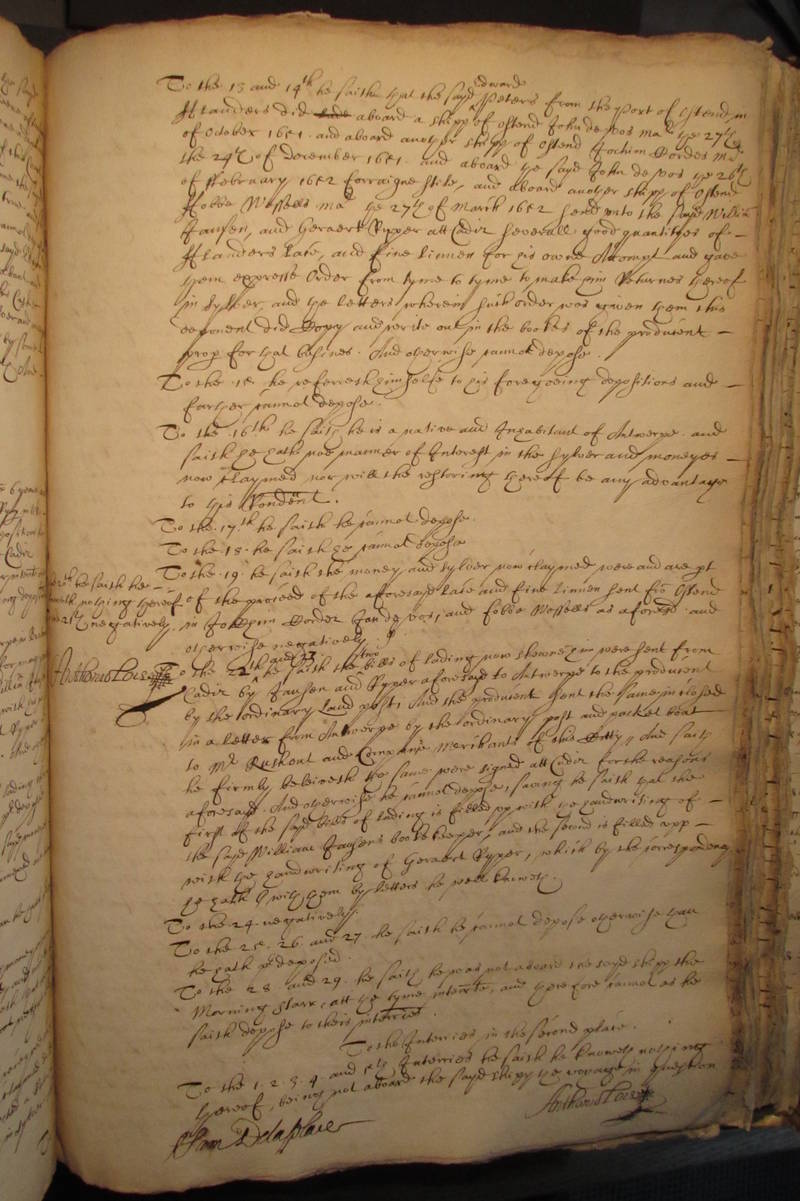 To the 13 and 14th he saith that the sayd Edward Peters from the Port of Ostend in
Flanders did aboard a shipp of Ostend John de Vos Mr the 27th
of October 1651. and aboard another shipp of Ostend Joachim Dordes Mr
the 24th of December 1651. and aboard the sayd John de Vos the 26th
of February 1652 forraigne stile, and aboard another shipp of Ostend
Fobbe Wessels Mr the 27th of March 1652 send unto the sayd William
Jansen, and Geraert Ryper att Cadiz severall good quantityes of -
Flanders Lace, and fine linnen for his owne Accompt and gave
them expresse Order from tyme to tyme to make him Returnes thereof
in sylver, and the letters wherein such order was given them this
deponent did Coppy and write out in the bookes of the producent -
kept for that busines. And otherwise cannot depose.
To the 15. he referreth himselfe to his foregoeing depositions and -
farther cannot depose.
To the 16th he saith he is a native and Inhabitant of Antwerpe. and
saith he hath noe manner of Interest in the sylver and moneyes -
now claymed nor will the restoring thereof be any advantage
to this Rendent.
To the 17th he saith he cannot depose.
To the 18. he saith he cannot depose
To the 19. he saith the money and sylver now claymed were and are pt
of the proceed of the aforesayd Lace and fine Linnen sent from Ostend
in Jochim Dorder Jan de vos, and Fobbe Wessells as aforesd. and
otherwise negatively.
20th he saith he -
hath nothing thereof
21th negatively.
To the 22th and 23 he saith the two bills of lading now shewne him were sent from
Cadiz by Jansen and Ryper aforesayd to Antwerpe to the producent
by the ordinary Land post, And the producent sent the same inclosed
in a letter from Antwerpe by the ordinary post and packet boat
to Mr Rushout and Companie Merchants of this Citty, And saith
he firmly beleiveth the same were signed att Cadiz for the reasons
aforesayd. And otherwise he cannot depose, saving he saith that the
first of the sayd bills of lading is filled up with the handwriting of -
the sayd William Jansens booke keeper, and the second is filled upp -
with the handwriting of Geraert Ryper, which by the correspondency
he hath with them by letters he well knoweth.
To the 24 negatively.
To the 25. 26. and 27. he saith he cannot depose otherwise than
he hath pre deposed.
To the 28. and 29. he saith he was not aboard the sayd shipp the
Morning Starr, att the tyme interrte, and therefore cannot as he
saith depose to theis interries.
To the Interries in the second place.
To the 1. 2. 3. 4. and 5th Interries he saith he knoweth nothing
thereof, being not aboard the sayd shipp the voyage in question